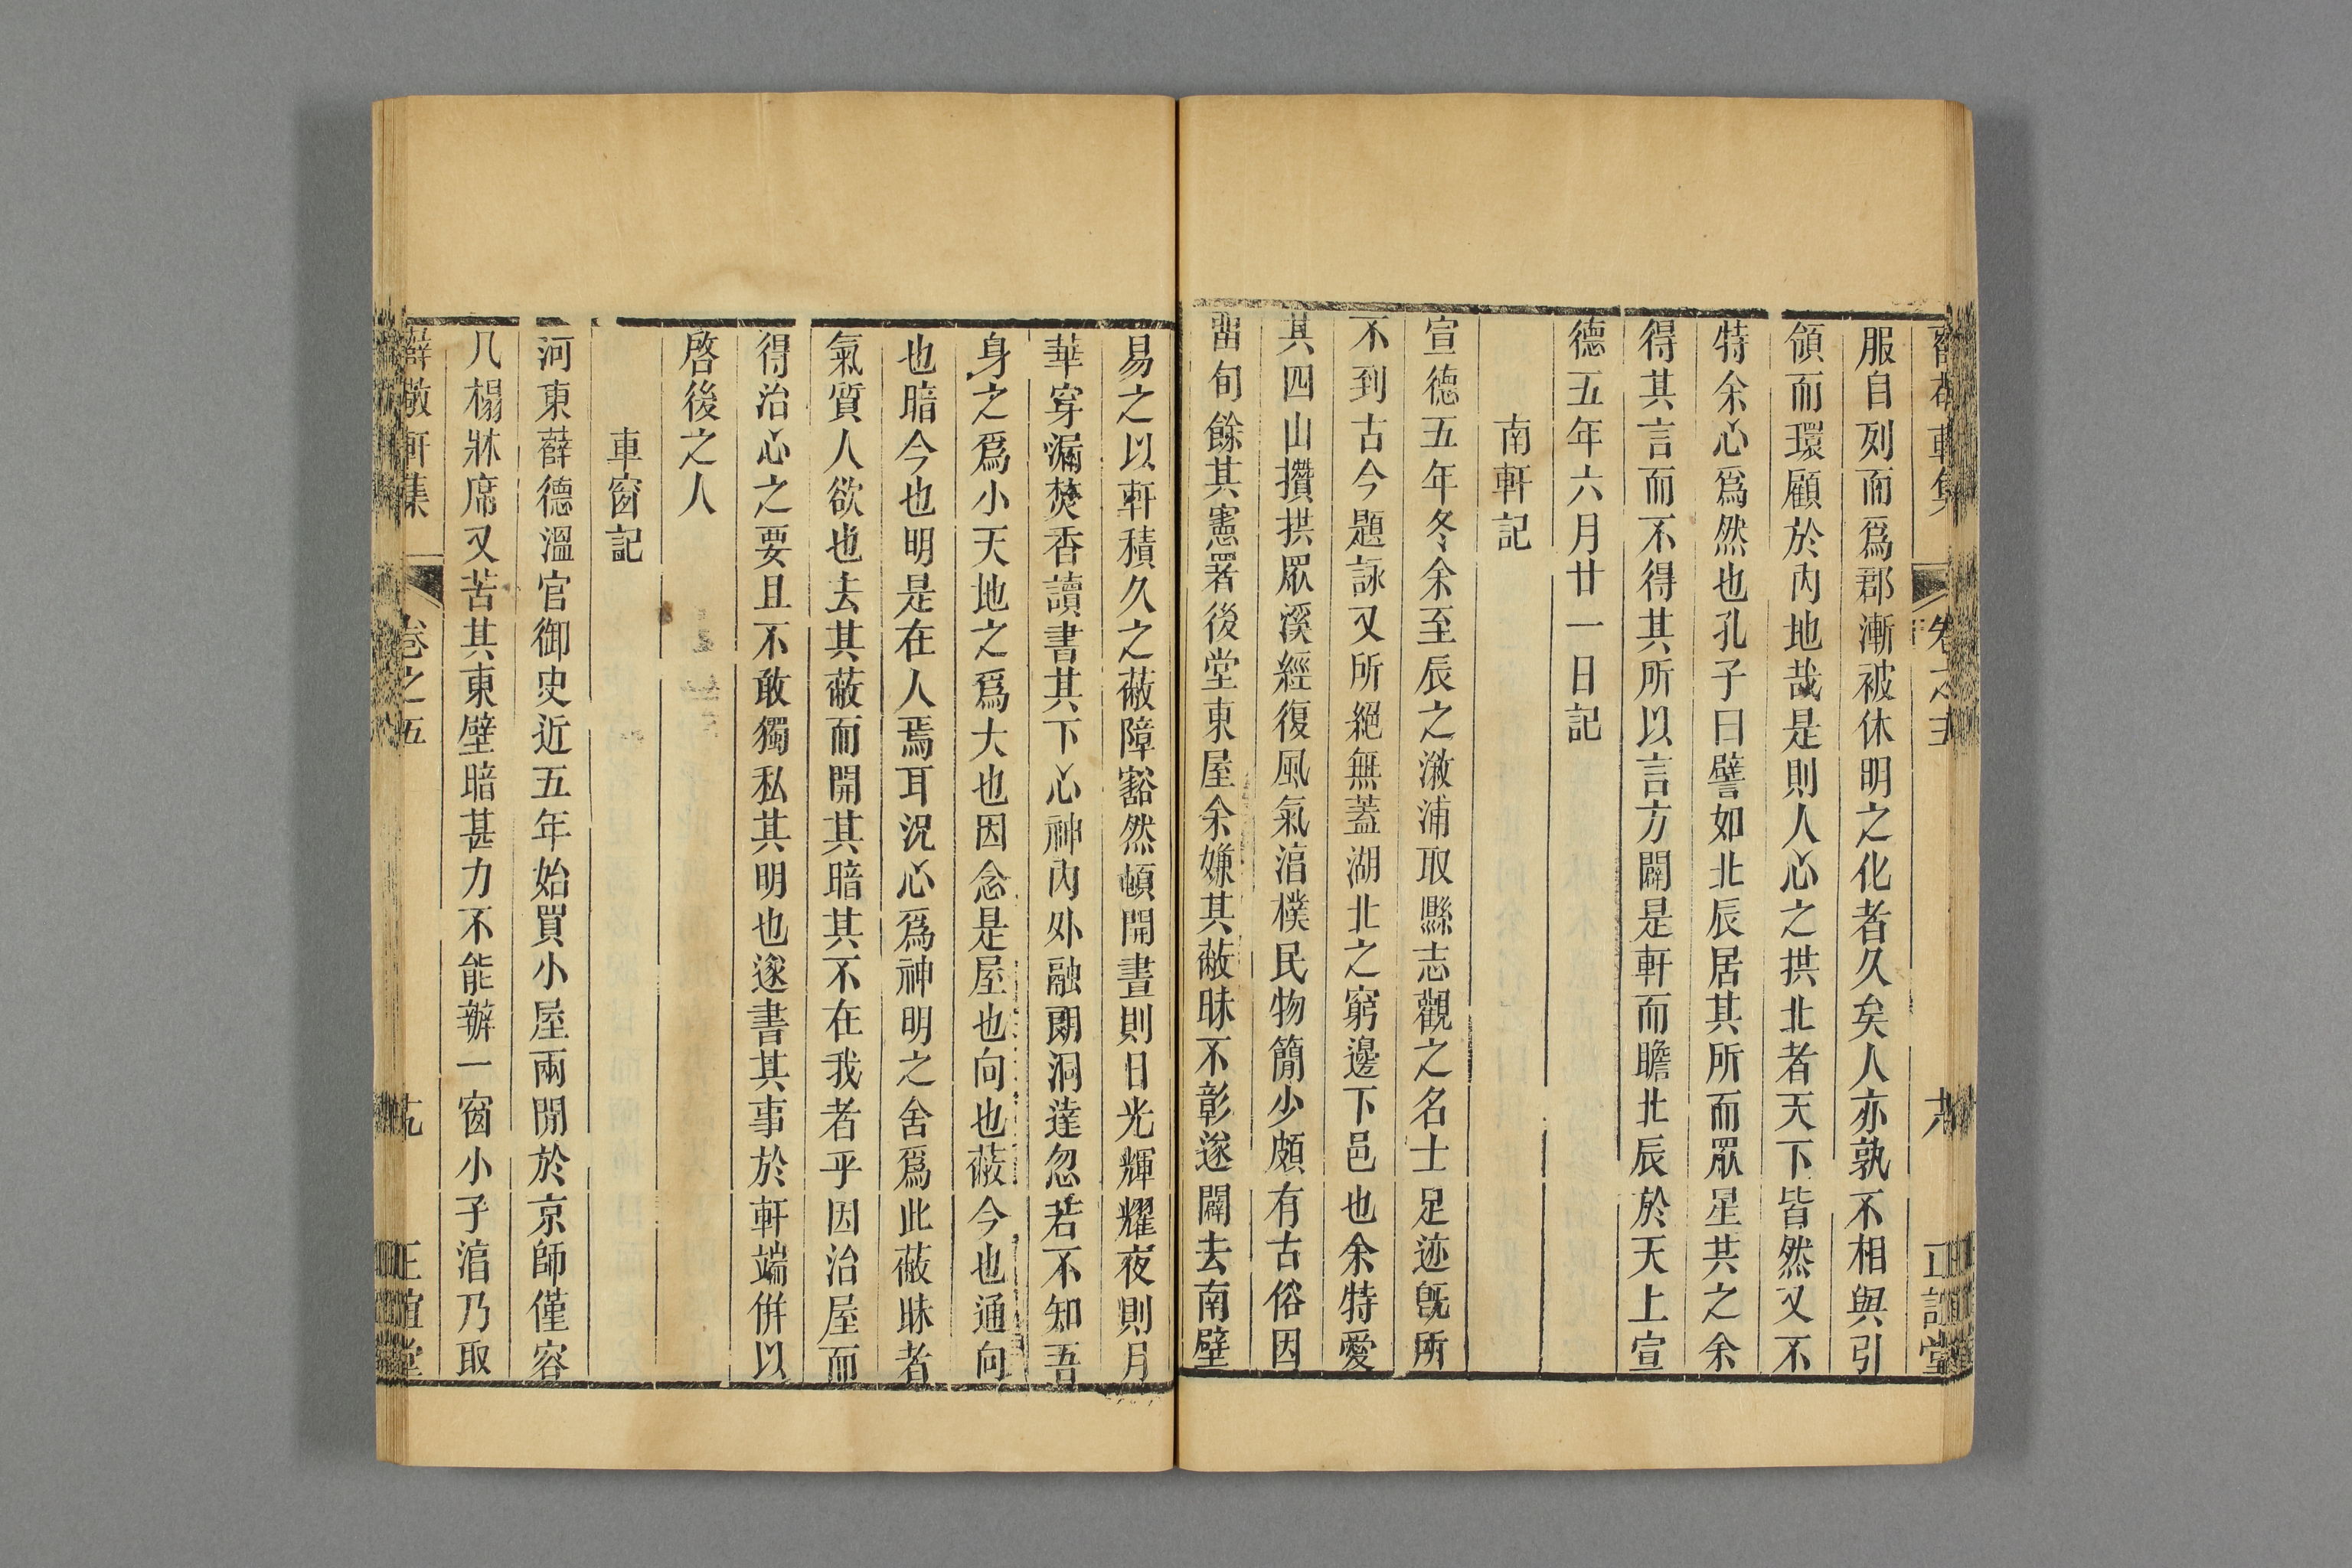 薛敬軒集 卷之五 六 正誼堂
服自列而爲郡漸被休明之化者久矣人亦孰不相與引
領而環顧於內地哉是則人心之拱北者天下皆然又不
特余心爲然也孔子曰譬如北辰居其所而眾星共之余
得其言而不得其所以言方闢是軒而瞻北辰於天上宣
德五年六月廿一日記
南軒記
宣德五年冬余至辰之漵浦取縣志觀之名士足迹既所
不到古今題詠又所絕無蓋湖北之窮邊下邑也余特愛
其四山攢拱眾溪經復風氣湻樸民物簡少頗有古俗因
畱旬餘其憲署後堂東屋余嫌其蔽昧不彰遂闢去南壁
易之以軒積久之蔽障豁然頓開晝則日光輝耀夜則月
華穿漏焚香讀書其下心神內外融朗洞達忽若不知吾
身之爲小天地之爲大也因念是屋也向也蔽今也通向
也暗今也明是在人焉耳況心爲神明之舍爲此蔽昧者
氣質人欲也去其蔽而開其暗其不在我者乎因治屋而
得治心之要且不敢獨私其明也遂書其事於軒端併以
啓後之人
車窗記
河東薛德溫官御史近五年始買小屋兩間於京師僅容
几榻牀席又苦其東壁暗甚力不能辦一窗小子湻乃取
薛敬軒集 卷之五 正誼堂